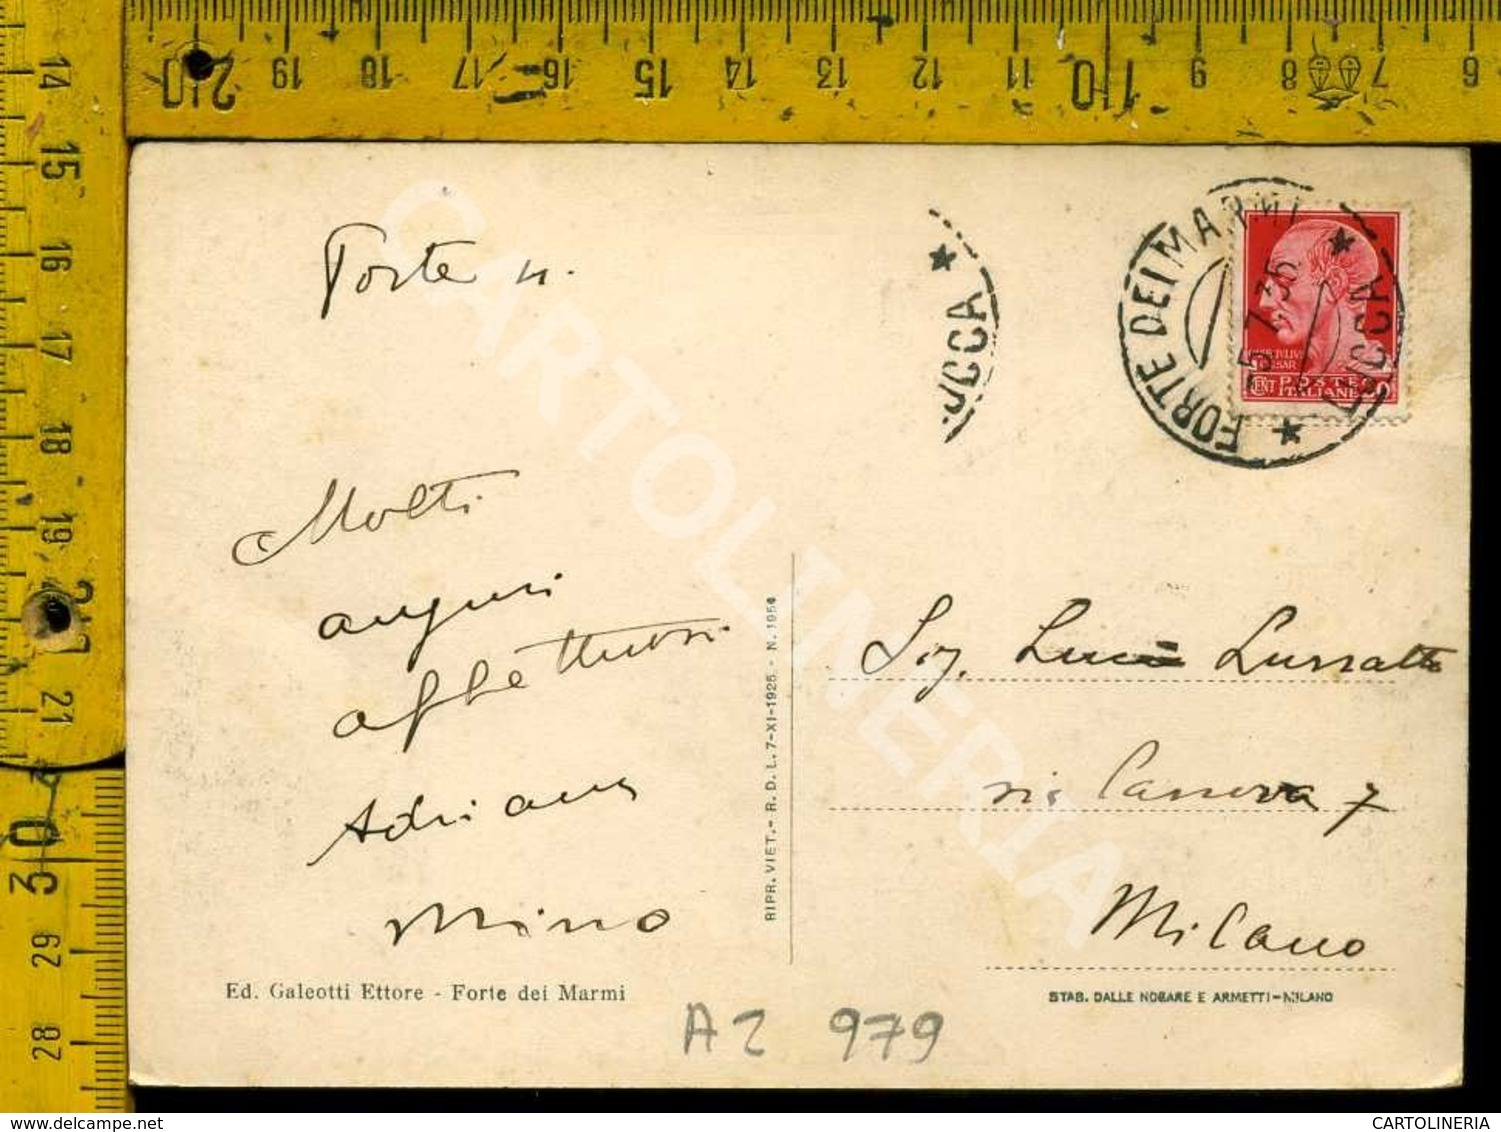 20 19 18 17 16 15 14 13 12 11 10 9 8 7 6
14
15
16
17
18
19
20
21
30
29
28
CARTOLINERIA
Forte
UCCA
FORTE DEI MARMI
5 7.35
LUCCA
CENT POSTE
ITALIANE
Molti
auguri
affettuosi
Adriana
Mino
Sig. Lucia Lussatto
via Canova 7
Milano
RIPR. VIET. - R. D. L. 7-XI-1925 - N. 1954
Ed. Galeotti Ettore - Forte dei Marmi
STAB. DALLE NOGARE E ARMETTI-MILANO
AZ 979
www.delcampe.net
CARTOLINERIA